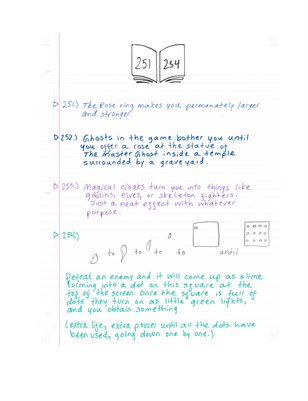 251 254
251.) The Rose ring makes you permanately larger
and stronger.
252.) Ghosts in the game bother you until
you offer a rose at the statue of
The Master Ghost inside a temple
surrounded by a graveyard.
253.) Magical cloaks turn you into things like
goblins, elves, or skeleton fighters.
Just a neat effect with whatever
purpose.
254.)
to to to to until
Defeat an enemy and it will come up as slime
forming into a dot on this square at the
top of the screen. Once the square is full of
dots they turn on as little green lights,
and you obtain something
(extra life, extra power until all the dots have
been used, going down one by one.)